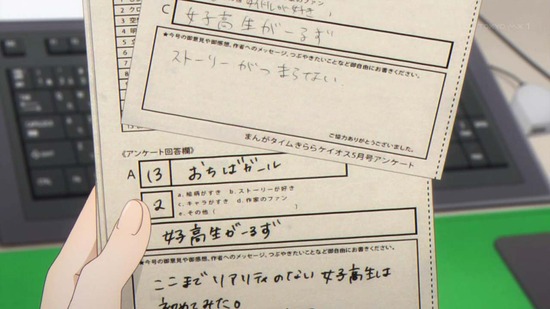 C
女子高生がーるず
★今号の御意見や御感想、作者へのメッセージ、つぶやきたいことなど御自由にお書きください。
ストーリーがつまらない
ご協力ありがとうございました。
まんがタイムきららケイオス5月号アンケート
《アンケート回答欄》
A
13
おちばガール
2
a.絵柄がすき b.ストーリーが好き
c.キャラがすき d.作家のファン
e.その他(
女子高生がーるず
★今号の御意見や御感想、作者へのメッセージ、つぶやきたいことなど御自由にお書きください。
ここまでリアリティのない女子高生は
初めてみた。